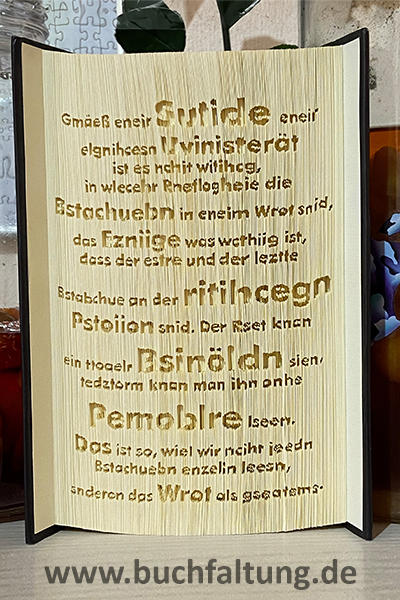 Gmäeß eneir Sutide eneir
elgnihcesn Uvinisterät
ist es nchit witihcg,
in wlecehr Rneflogheie die
Bstachuebn in eneim Wrot snid,
das Ezniige was wcthiig ist,
dass der estre und der leztte
Bstabchue an der ritihcegn
Pstoiion snid. Der Rset knan
ein ttoaelr Bsinöldn sien,
tedztorm knan man ihn onhe
Pemoblre lseen.
Das ist so, wiel wir nciht jeedn
Bstachuebn enzelin leesn,
snderon das Wrot als gseatems.
www.buchfaltung.de